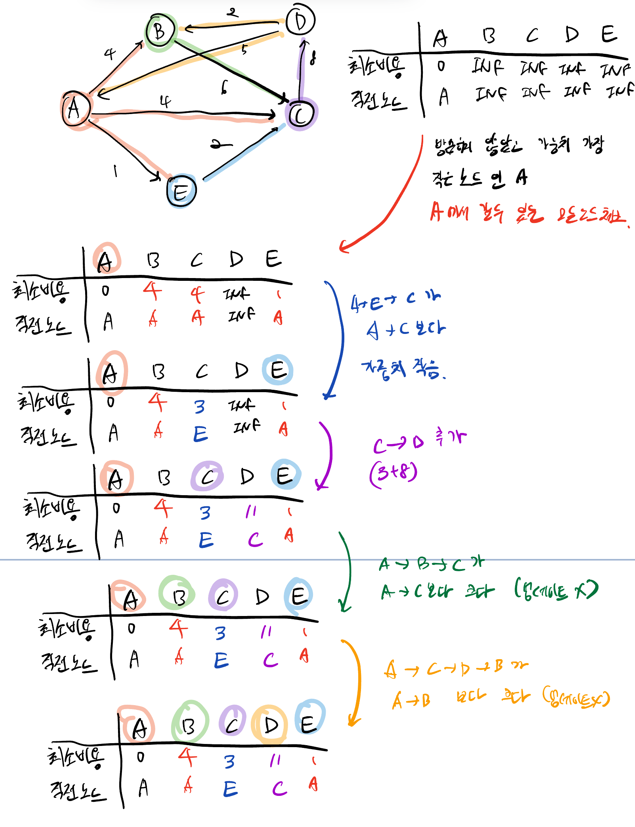 B 2 D
4 5
A 4 6 8
C
1 2
E
A B C D E
최소비용 0 INF INF INF INF
직전노드 A INF INF INF INF
방문하지 않았고 가중치 가장
작은 노드 인 A
A에서 갈수 있는 모든노드체크.
A B C D E
최소비용 0 4 4 INF 1
직전노드 A A A INF A
A→E→C가
A→C보다
가중치 작음.
A B C D E
최소비용 0 4 3 INF 1
직전노드 A A E INF A
C→D 추가
(3+8)
A B C D E
최소비용 0 4 3 11 1
직전노드 A A E C A
A→B→C가
A→C보다 크다 (업데이트 X)
A B C D E
최소비용 0 4 3 11 1
직전노드 A A E C A
A→C→D→B가
A→B 보다 크다 (업데이트X)
A B C D E
최소비용 0 4 3 11 1
직전노드 A A E C A